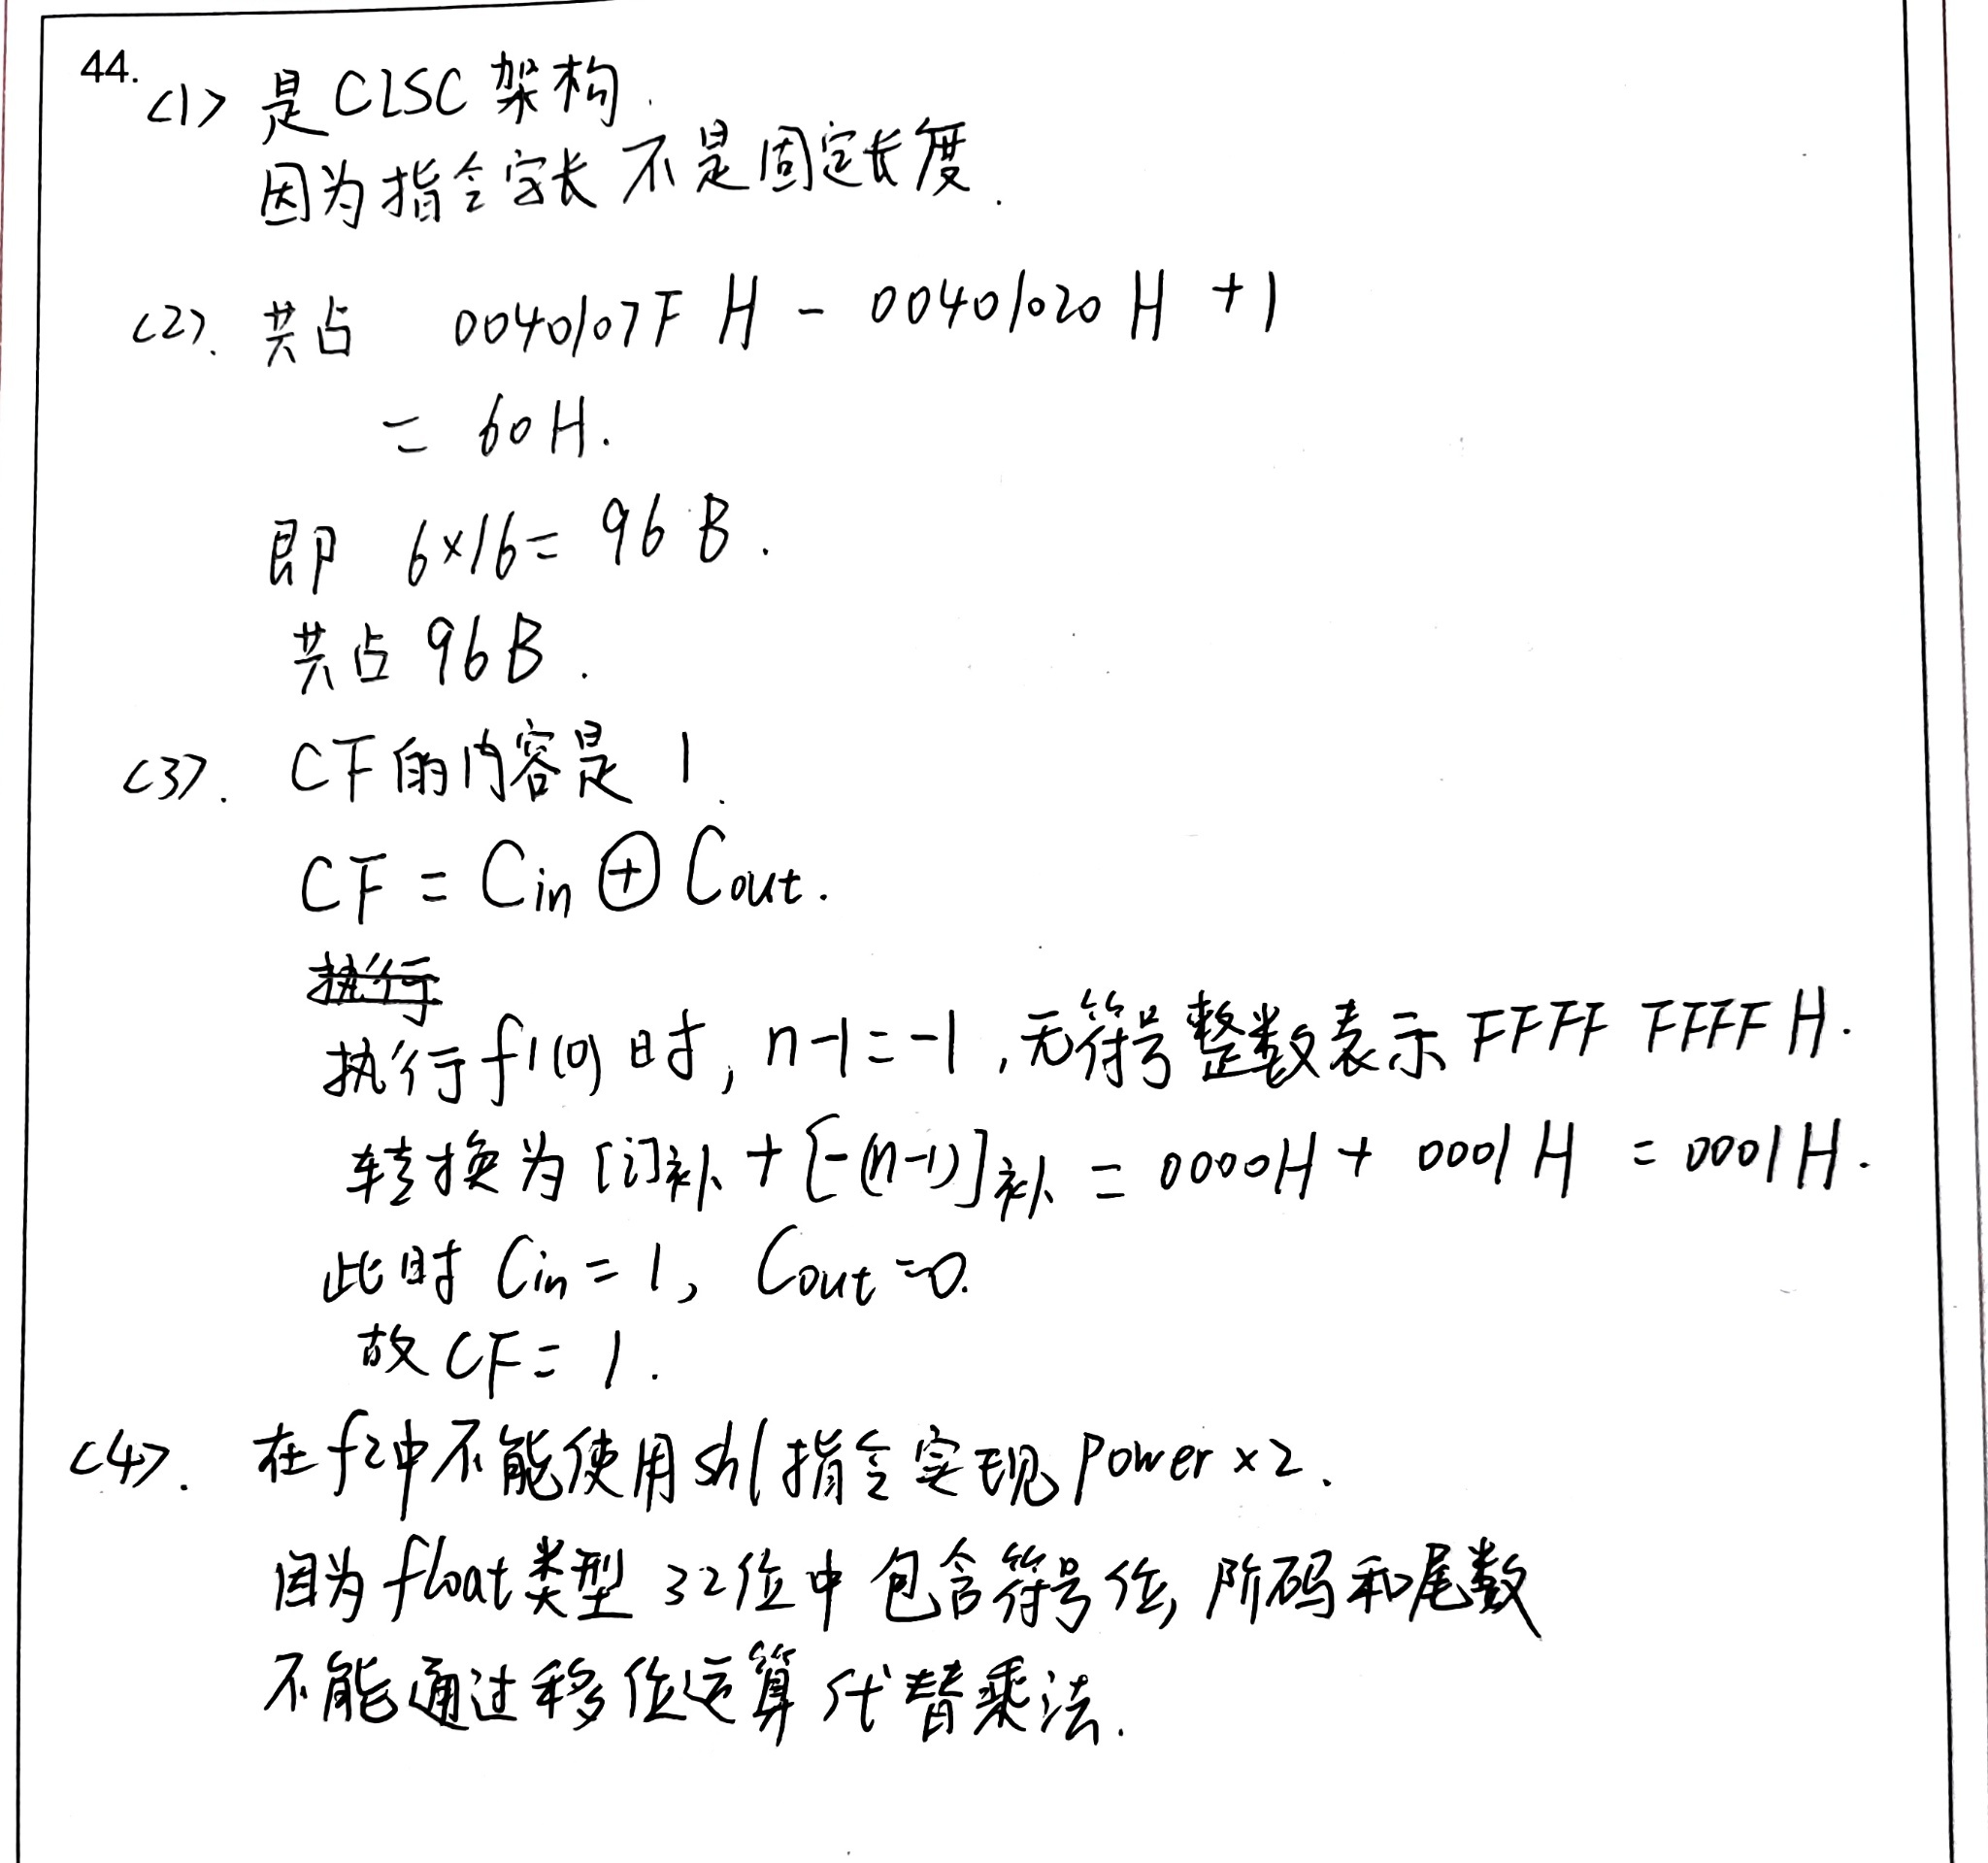 44.
<1> 是CISC架构.
因为指令字长不是固定长度.
<2>. 共占 0040107F H - 00401020 H +1
= 60H.
即 6×16= 96 B.
共占 96B.
<3>. CF的内容是 1.
CF = Cin ⊕ Cout.
执行
执行f1(0)时, n-1=-1, 无符号整数表示 FFFF FFFF H.
转换为 [i]补 + [-(n-1)]补 = 0000H + 0001H = 0001H.
此时 Cin = 1, Cout=0.
故 CF= 1.
<4>. 在f2中不能使用shl指令实现 Power×2.
因为float类型 32位中包含符号位, 阶码和尾数
不能通过移位运算代替乘法.